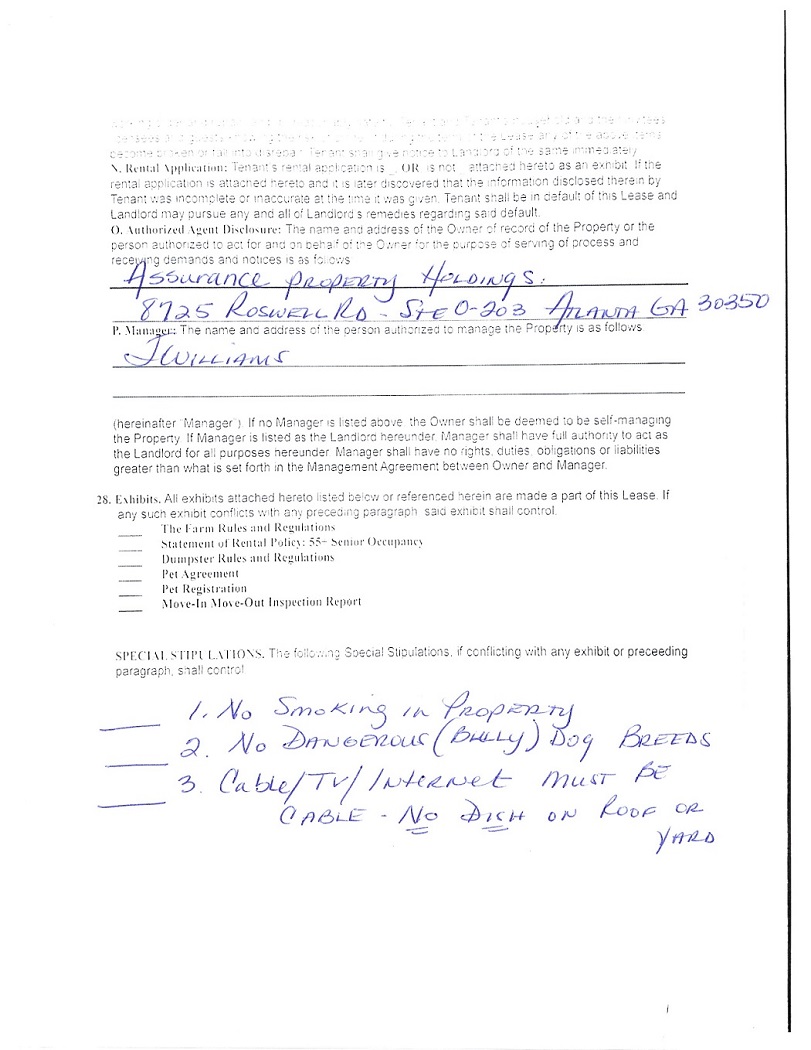 become broken or fall into disrepair Tenant shall give notice to Landlord of the same immediately
N. Rental Application: Tenant's rental application is _ OR is not _ attached hereto as an exhibit. If the
rental application is attached hereto and it is later discovered that the information disclosed therein by
Tenant was incomplete or inaccurate at the time it was given. Tenant shall be in default of this Lease and
Landlord may pursue any and all of Landlord's remedies regarding said default.
O. Authorized Agent Disclosure: The name and address of the Owner of record of the Property or the
person authorized to act for and on behalf of the Owner for the purpose of serving of process and
receiving demands and notices is as follows
Assurance Property Holdings.
8725 Roswell Rd - Ste O-203 Atlanta GA 30350
P. Manager: The name and address of the person authorized to manage the Property is as follows
J Williams
(hereinafter "Manager"). If no Manager is listed above, the Owner shall be deemed to be self-managing
the Property. If Manager is listed as the Landlord hereunder, Manager shall have full authority to act as
the Landlord for all purposes hereunder. Manager shall have no rights, duties, obligations or liabilities
greater than what is set forth in the Management Agreement between Owner and Manager.
28. Exhibits. All exhibits attached hereto listed below or referenced herein are made a part of this Lease. If
any such exhibit conflicts with any preceding paragraph, said exhibit shall control.
The Farm Rules and Regulations
Statement of Rental Policy: 55+ Senior Occupancy
Dumpster Rules and Regulations
Pet Agreement
Pet Registration
Move-In Move-Out Inspection Report
SPECIAL STIPULATIONS. The following Special Stipulations, if conflicting with any exhibit or preceeding
paragraph, shall control
1. No Smoking in Property
2. No Dangerous (Bully) Dog Breeds
3. Cable/TV/Internet must be
Cable - No Dish on Roof or
Yard